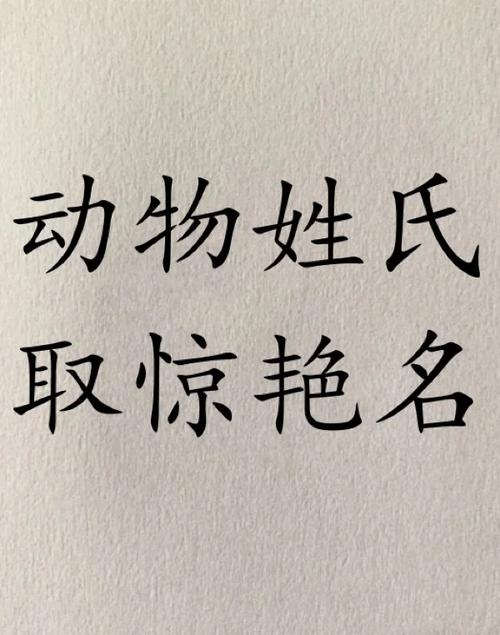 动物姓氏
取惊艳名